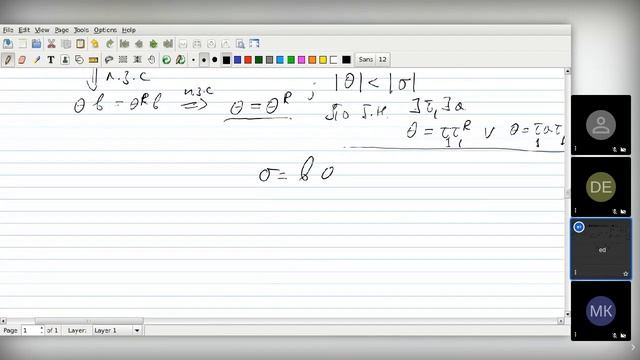 File Edit View Page Tools Options Help
Sans 12
⇓ п.з.с ; |θ| < |σ|
θb = θᴿb п.з.с ⇒ θ = θᴿ По І.Н. ∃τ₁∃a
θ = τ₁τ₁ᴿ ∨ θ = τ₁aτ₁
σ = b σ
DE
ed
MK
Page 1 of 1 Layer: Layer 1